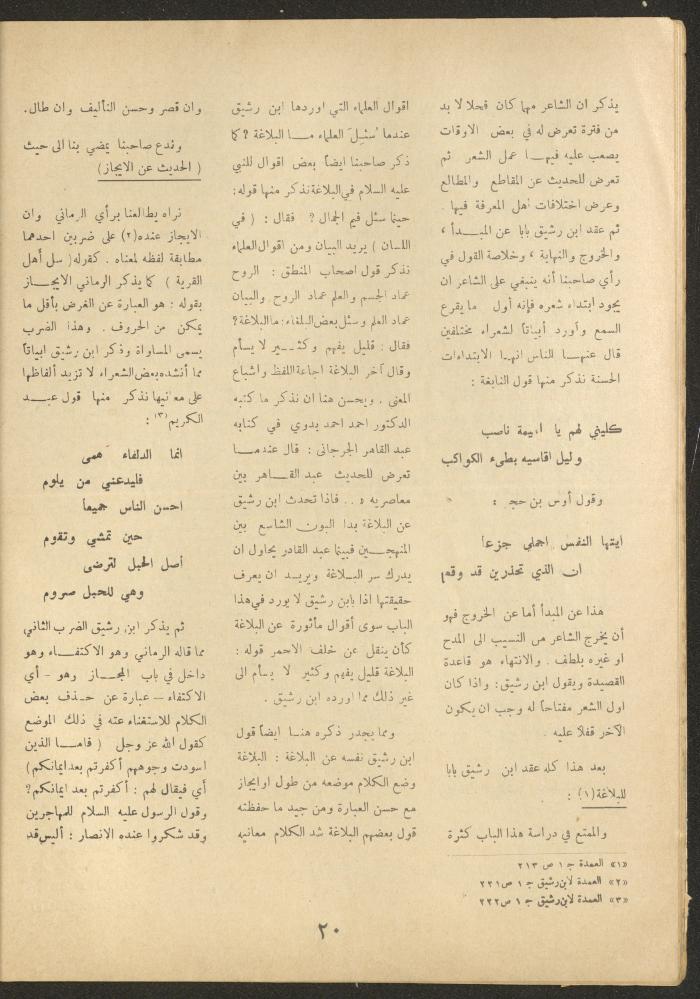 يذكر ان الشاعر مهما كان فحلا لا بد
من فترة تعرض له في بعض الاوقات
يصعب عليه فيهــا عمل الشعر ثم
تعرض للحديث عن المقاطع والمطالع
وعرض اختلافات اهل المعرفة فيها .
ثم عقد ابن رشيق بابا عن المبــدأ ،
والخروج والنهاية ، وخلاصة القول في
رأي صاحبنا أنه ينبغي على الشاعر ان
يجود ابتداء شعره فإنه أول ما يقرع
السمع وأورد أبياتاً لشعراء مختلفين
قال عنهــا الناس انهــا الابتداءات
الحسنة نذكر منها قول النابغة :
كليني لهم يا اميمة ناصب
وليل اقاسيه بطيء الكواكب
وقول أوس بن حجر :
ايتها النفس اجملي جزعا
ان الذي تحذرين قد وقعا
هذا عن المبدأ أما عن الخروج فهو
أن يخرج الشاعر من النسيب الى المدح
او غيره بلطف . والانتهاء هو قاعدة
القصيدة ويقول ابن رشيق : واذا كان
اول الشعر مفتاحاً له وجب ان يكون
الآخر قفلا عليه .
بعد هذا كله عقد ابن رشيق بابا
للبلاغة (١) :
والممتع في دراسة هذا الباب كثرة
«١» العمدة ج ١ ص ٢١٣
«٢» العمدة لابن رشيق ج ١ ص ٢٢١
«٣» العمدة لابن رشيق ج ١ ص ٢٢٢
اقوال العلماء التي اوردها ابن رشيق
عندما سئل العلماء مــا البلاغة ؟ كما
ذكر صاحبنا ايضاً بعض اقوال للنبي
عليه السلام في البلاغة نذكر منها قوله :
حينما سئل فيم الجمال ؟ فقال : ( في
اللسان ) يريد البيان ومن اقوال العلماء
نذكر قول اصحاب المنطق : الروح
عماد الجسم والعلم عماد الروح والبيان
عماد العلم وسئل بعض البلغاء : ما البلاغة ؟
فقال : قليل يفهم وكثــير لا يسأم
وقال آخر البلاغة اجاعة اللفظ واشباع
المعنى . ويحسن هنا ان نذكر ما كتبه
الدكتور احمد احمد بدوي في كتابه
عبد القاهر الجرجاني : قال عندمــا
تعرض للحديث عبد القــاهر بين
معاصريه « .. فاذا تحدث ابن رشيق
عن البلاغة بدا البون الشاسع بين
المنهجــين فبينما عبد القادر يحاول ان
يدرك سر البــلاغة ويريــد ان يعرف
حقيقتها اذا بابن رشيق لا يورد في هذا
الباب سوى أقوال مأثورة عن البلاغة
كأن ينقل عن خلف الاحمر قوله :
البلاغة قليل يفهم وكثير لا يسأم الى
غير ذلك مما اورده ابن رشيق .
ومما يجدر ذكره هنــا ايضاً قول
ابن رشيق نفسه عن البلاغة : البلاغة
وضع الكلام موضعه من طول او ايجاز
مع حسن العبارة ومن جيد ما حفظته
قول بعضهم البلاغة شد الكلام معانيه
وان قصر وحسن التأليف وان طال .
وندع صاحبنا يمضي بنا الى حيث
( الحديث عن الايجاز )
نراه يطالعنا برأي الرماني وان
الايجاز عنده (٢) على ضربين احدهما
مطابقة لفظه لمعناه . كقوله ( سل أهل
القرية ) كما يذكر الرماني الايجــاز
بقوله : هو العبارة عن الغرض بأقل ما
يمكن من الحروف . وهذا الضرب
يسمى المساواة وذكر ابن رشيق ابياتاً
مما أنشده بعض الشعراء لا تزيد ألفاظها
على معانيها نذكر منها قول عبــد
الكريم (٣) :
انما الدلفاء همى
فليدعني من يلوم
احسن الناس جميعا
حين تمشي وتقوم
أصل الحبل لترضى
وهي للحبل صروم
ثم يذكر ابن رشيق الضرب الثاني
مما قاله الرماني وهو الاكتفــاء وهو
داخل في باب المجــاز وهو – أي
الاكتفاء – عبارة عن حــذف بعض
الكلام للاستغناء عنه في ذلك الموضع
كقول الله عز وجل ( فامــا الذين
اسودت وجوههم أكفرتم بعد ايمانكم )
أي فيقال لهم : أكفرتم بعد ايمانكم ؟
وقول الرسول عليه السلام للمهاجرين
وقد شكروا عنده الانصار : أليس قد
٢٠